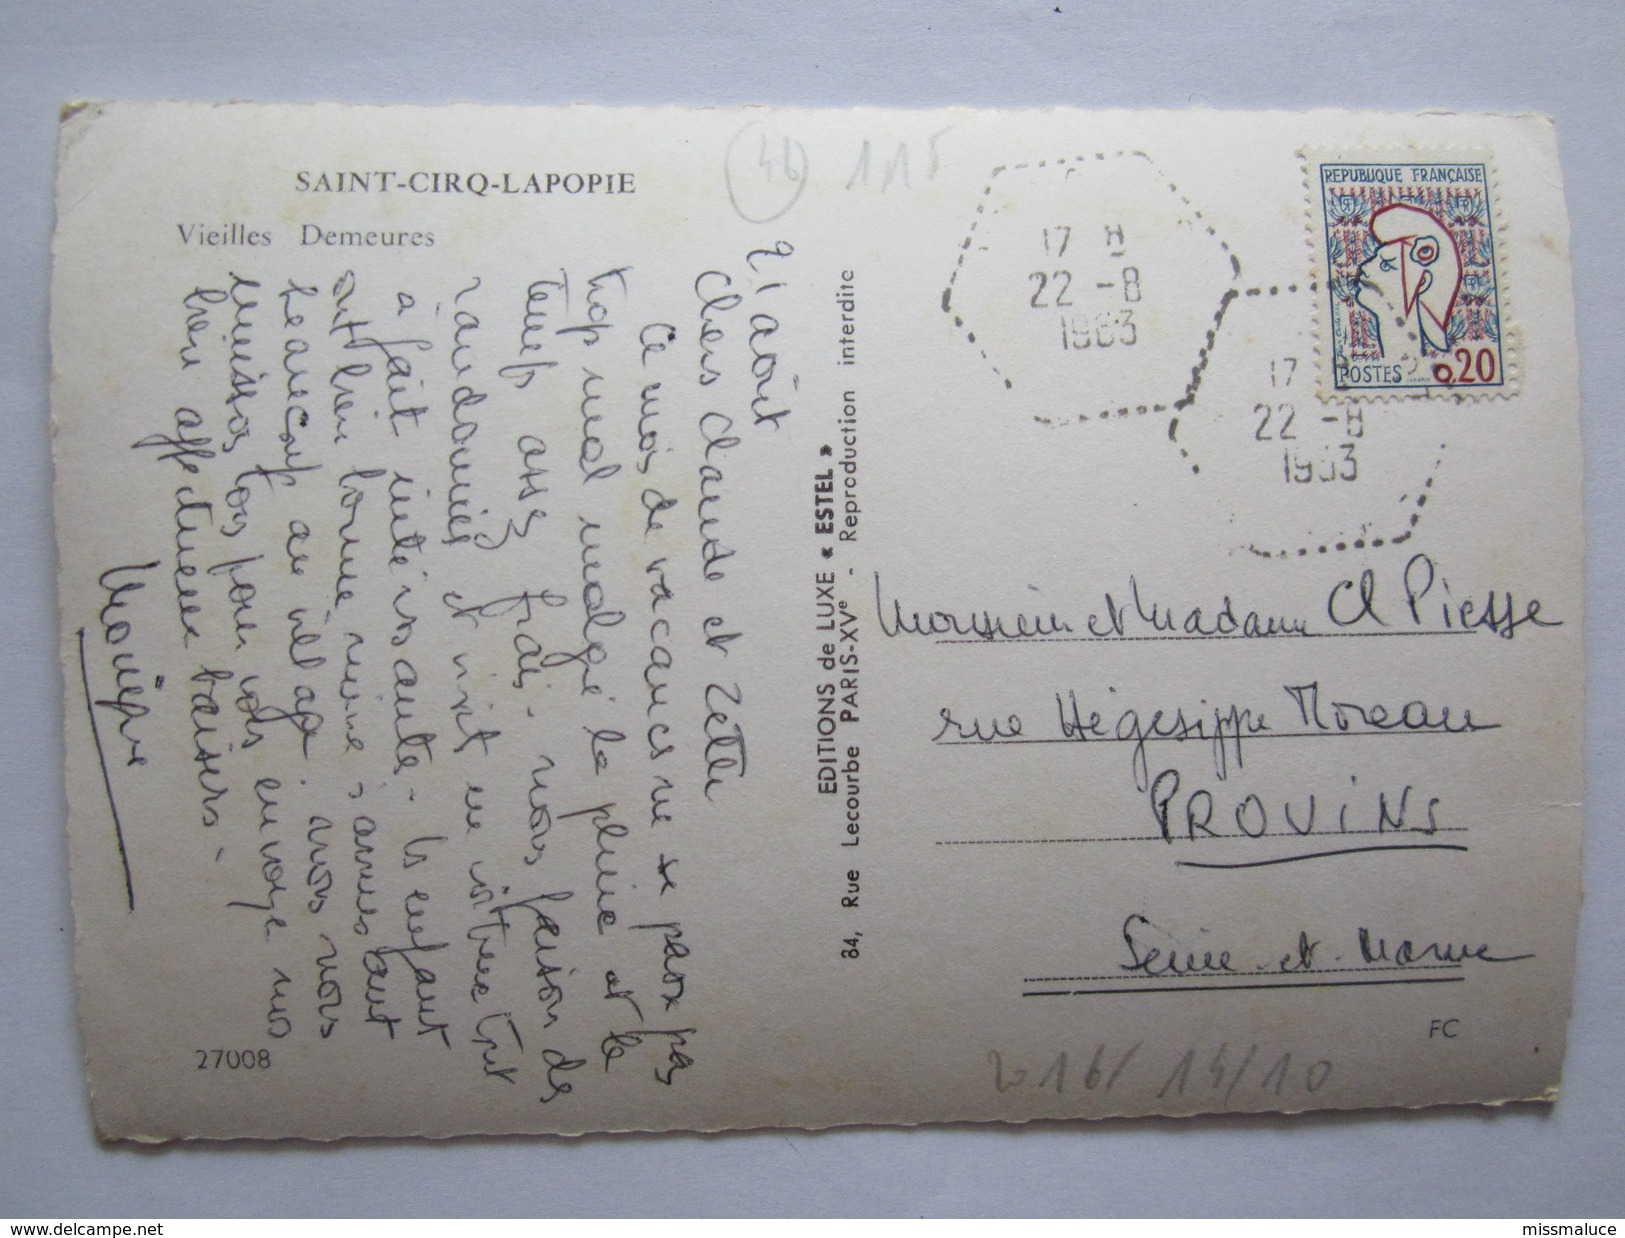 SAINT-CIRQ-LAPOPIE
Vieilles Demeures
21 août
Chers Claude et Zette
Ce mois de vacances ne se passe pas
trop mal malgré la pluie et le
temps assez frais. nous faison de
randonnées et visit
a fait intéressante. les enfant
ont bien bonne mine s'amusent
beaucoup au village. nous nous
unissos tous pour vous envoyer nos
bien affectueux baisers.
27008
EDITIONS de LUXE « ESTEL »
84, Rue Lecourbe PARIS-XVe - Reproduction interdite
46 1,15
17 H
22 -8
1963
17
22 -8
1963
REPUBLIQUE FRANÇAISE
POSTES 0,20
Monsieur et Madame Cl Piesse
rue Hégésippe Moreau
PROVINS
Seine-et-Marne
FC
2016/ 14/10
www.delcampe.net
missmaluce